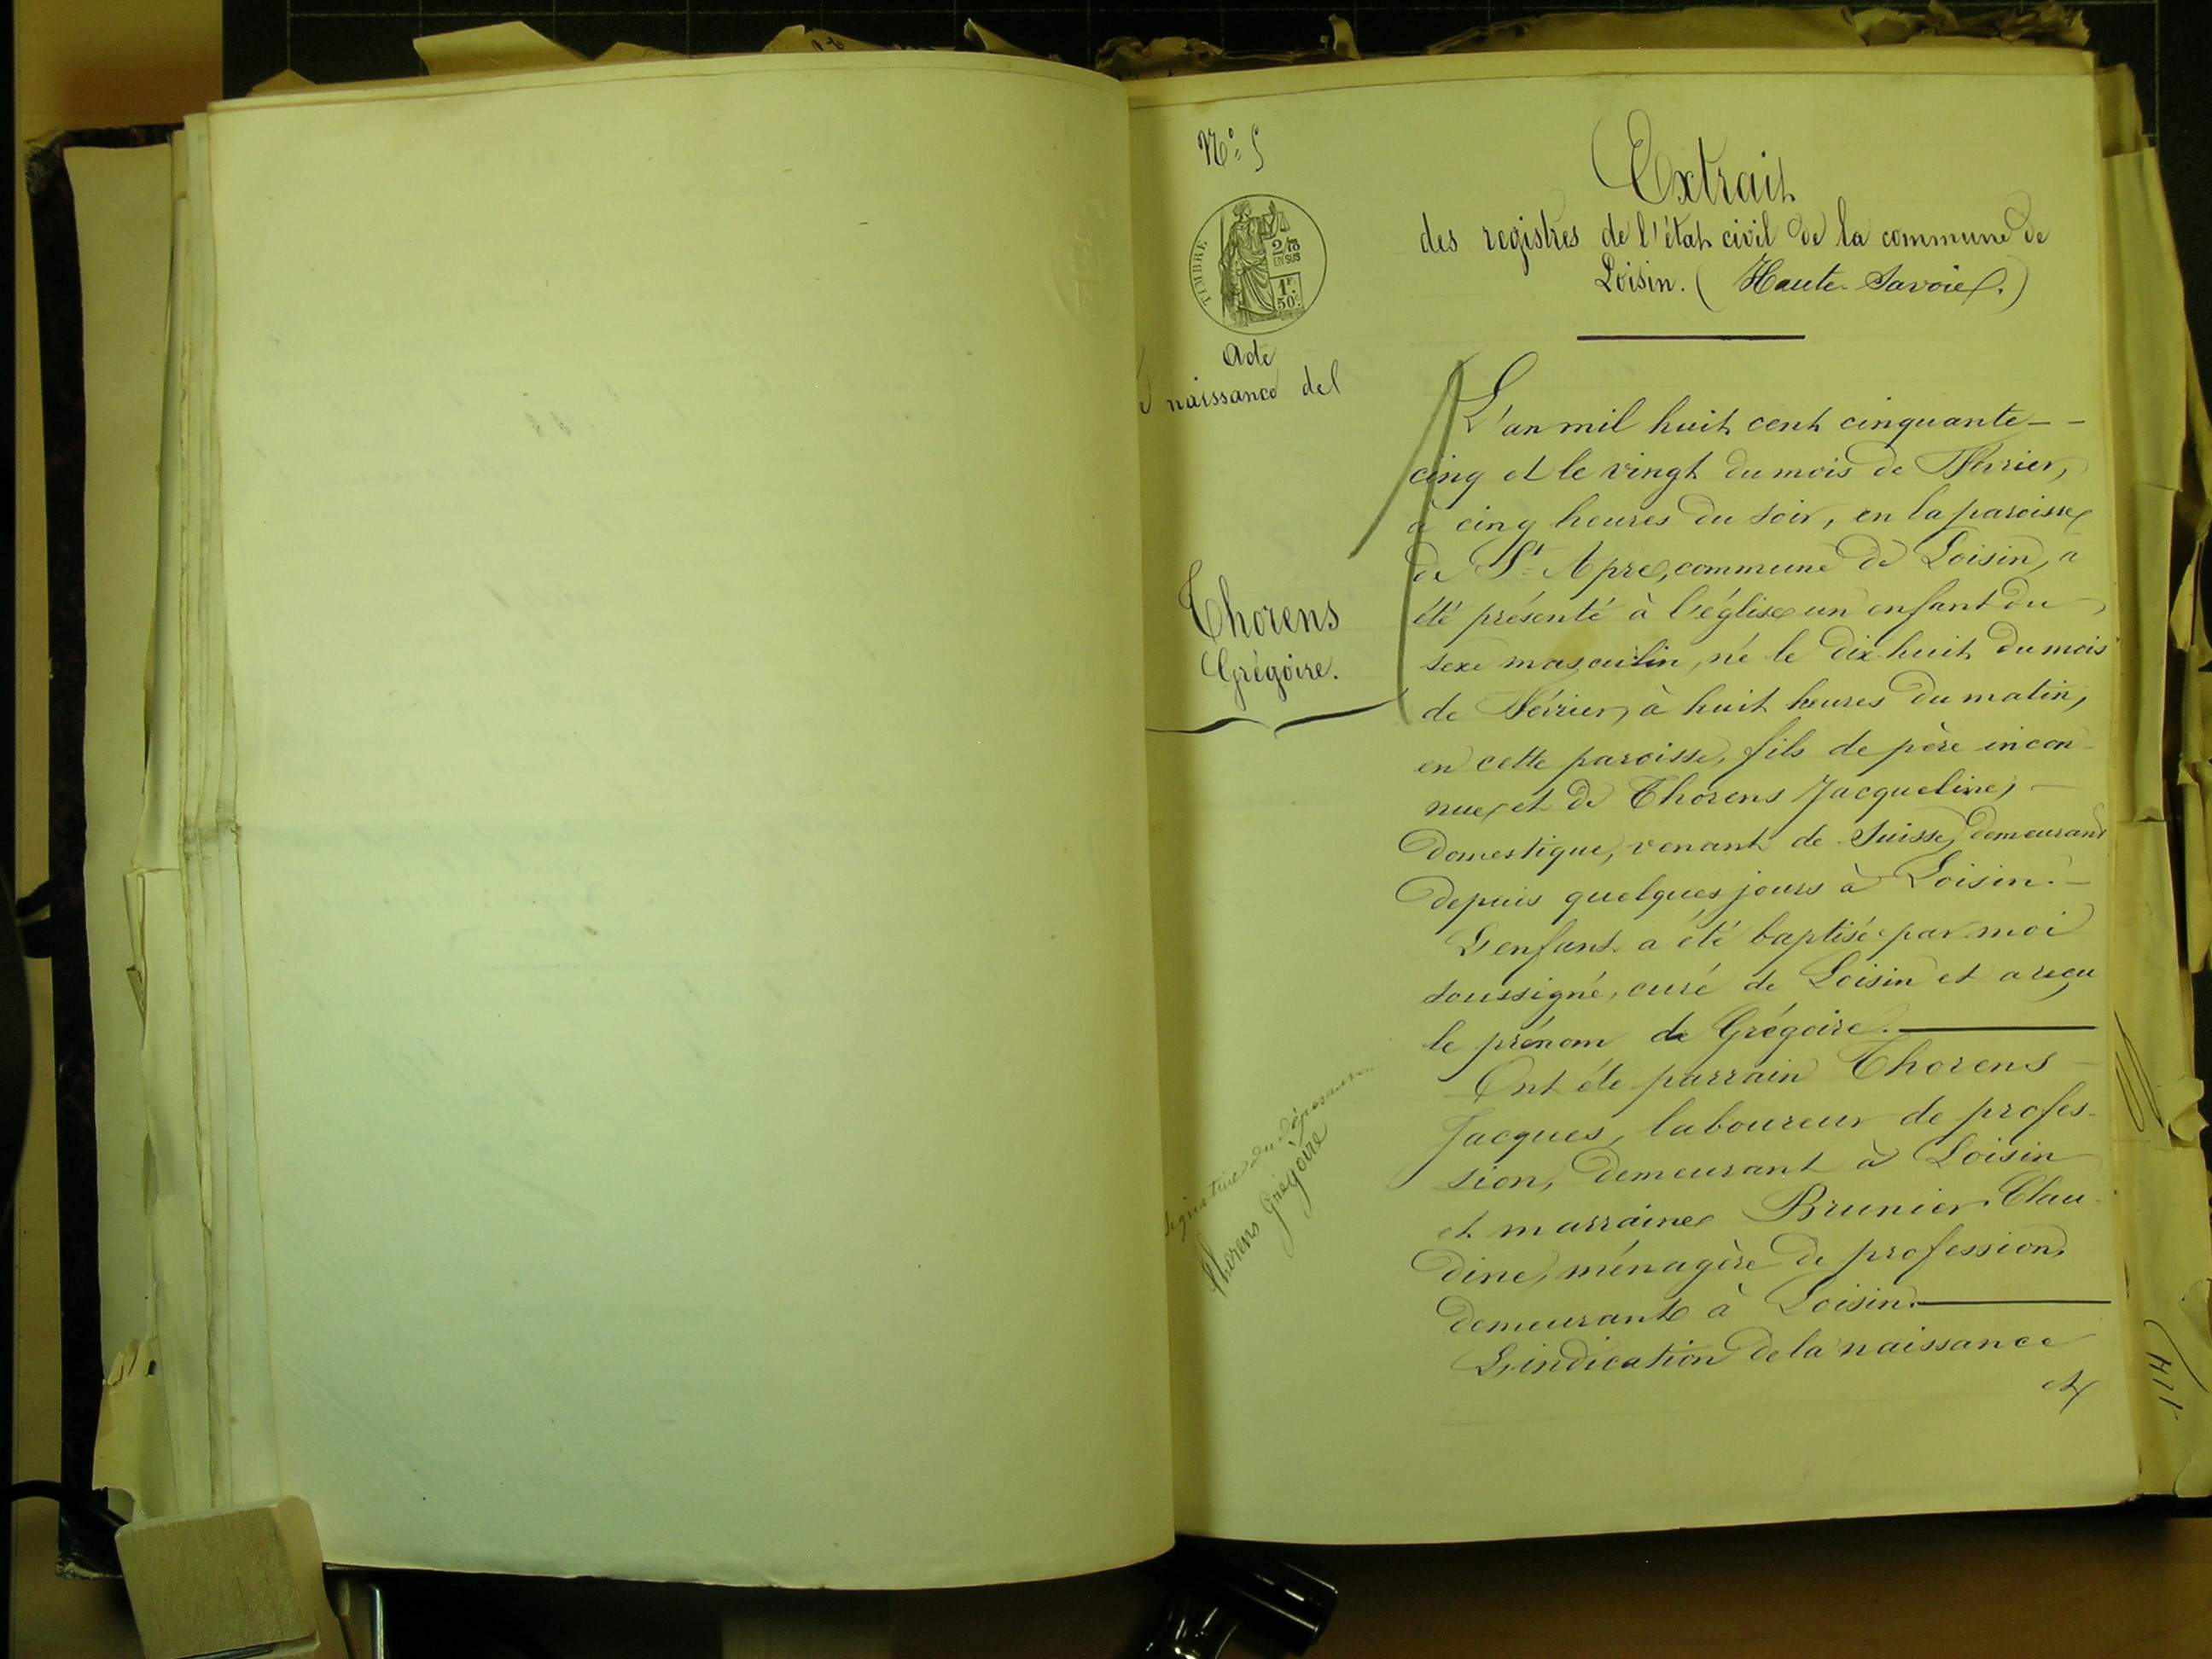 N.° 5
TIMBRE
2/10
EN SUS
1F.
50c
Acte
de naissance de
Thorens
Grégoire.
Signature du
Thorens Grégoire
Extrait
des registres de l'état civil de la commune de
Loisin. (Haute-Savoie.)
L'an mil huit cent cinquante--
cinq et le vingt du mois de Février,
à cinq heures du soir, en la paroisse
de St Apre, commune de Loisin, a
été présenté à l'église un enfant du
sexe masculin, né le dix huit du mois
de Février, à huit heures du matin,
en cette paroisse, fils de père incon-
nue, et de Thorens Jacqueline, -
domestique, venant de Suisse, demeurant
depuis quelques jours à Loisin. -
L'enfant a été baptisé par moi
soussigné, curé de Loisin et a reçu
le prénom de Grégoire.
Ont été parrain Thorens -
Jacques, laboureur de profes-
sion, demeurant à Loisin
et marraine Brunier Clau-
dine, ménagère de profession,
demeurante à Loisin.
L'indication de la naissance
et